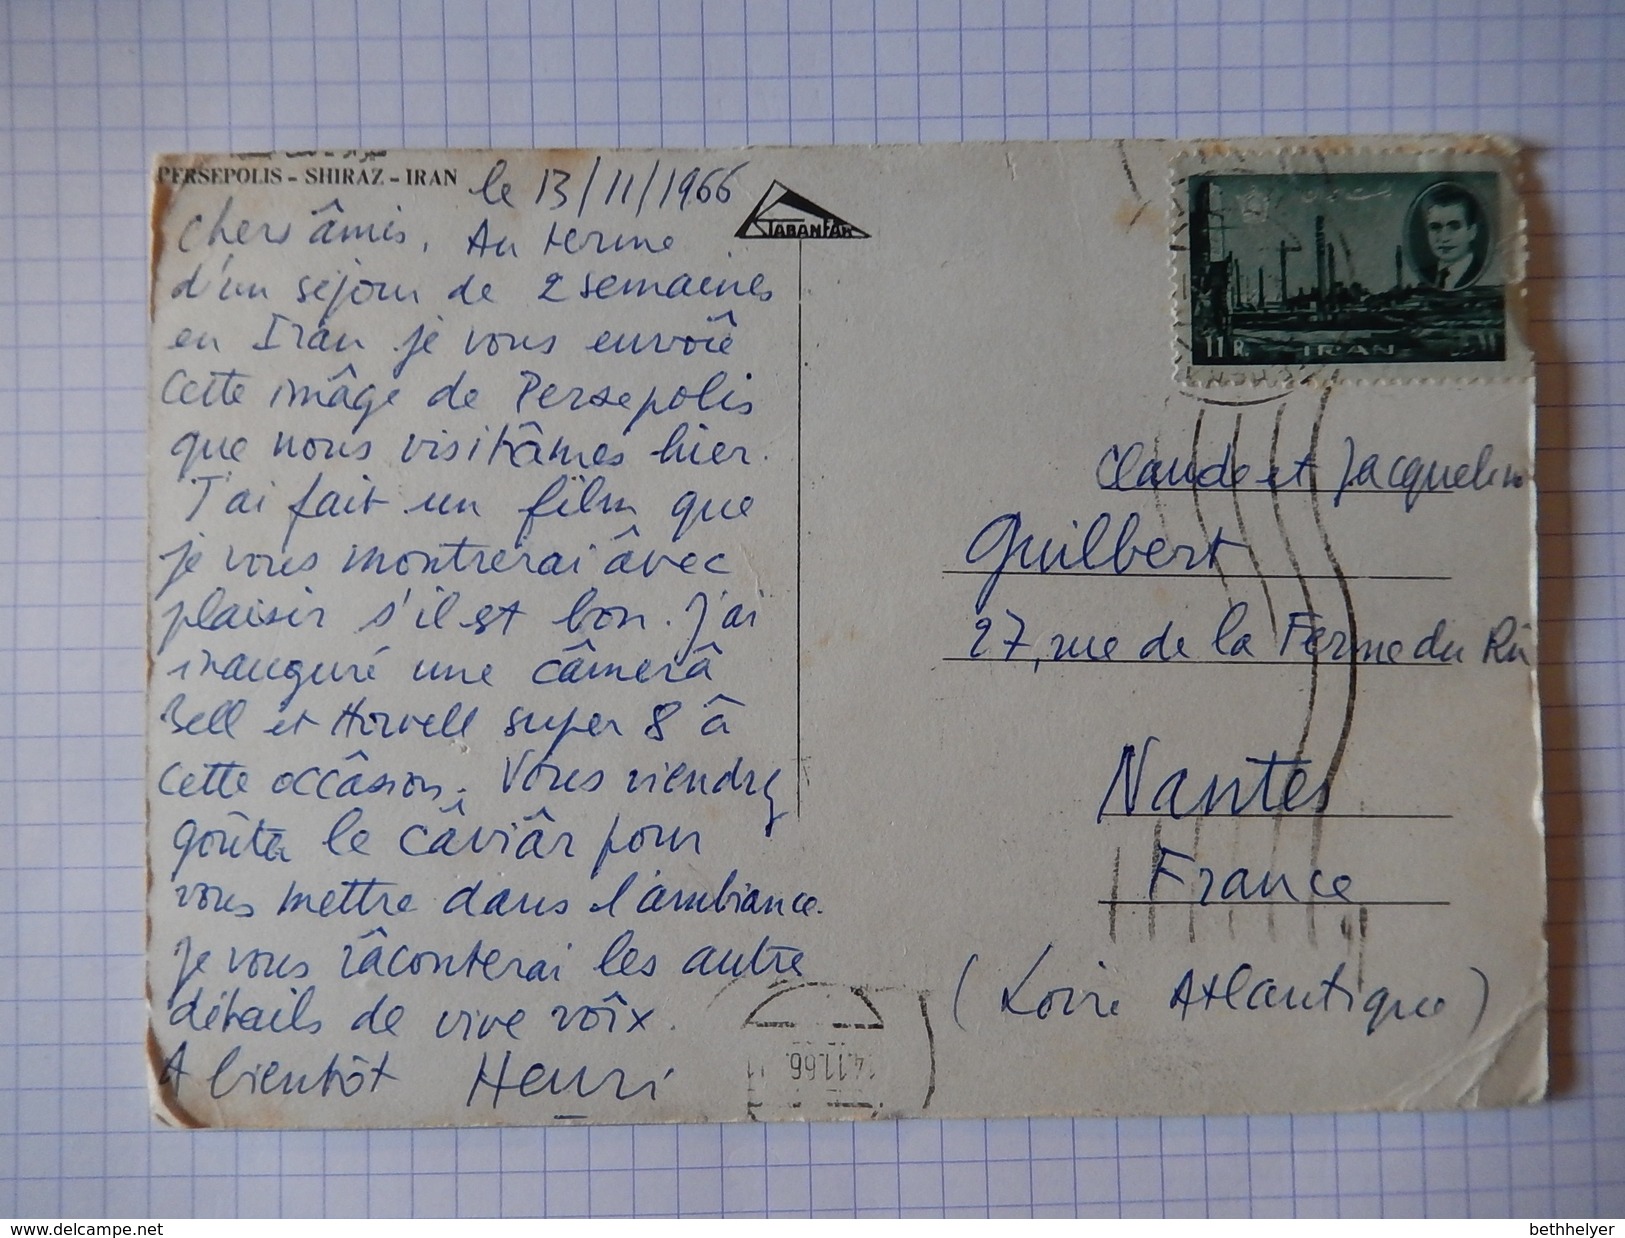 PERSEPOLIS - SHIRAZ - IRAN
le 13/11/1966
Chers âmis. Au terme
d'un séjour de 2 semaines
en Iran je vous envoîe
cette imâge de Persepolis
que nous visitâmes hier.
J'ai fait un film que
je vous montrerai âvec
plaisir s'il est bon. J'ai
inauguré une câmerâ
Bell et Howell super 8 â
cette occâsion. Vous viendrez
goûter le câviâr pour
vous mettre dans l'ambiance.
Je vous râconterai les autre
détails de vive voîx.
A bientôt Henri
TABANFAR
11 R. IRAN
Claude et Jacqueline
Guilbert
27, rue de la Ferme du Rû
Nantes
France
(Loire Atlantique)
14.11.66
www.delcampe.net
bethhelyer